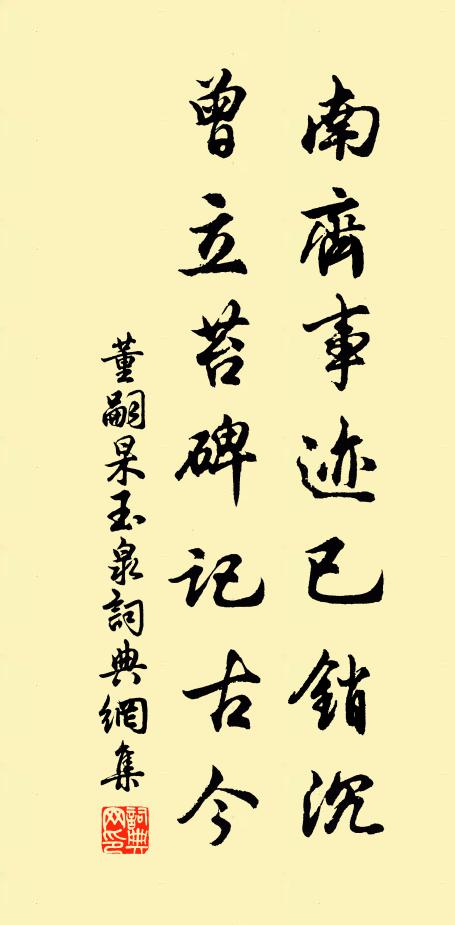 南齊事迹已銷沉
曾立苔碑記古今
董嗣杲玉泉詞典網集
詞典網印